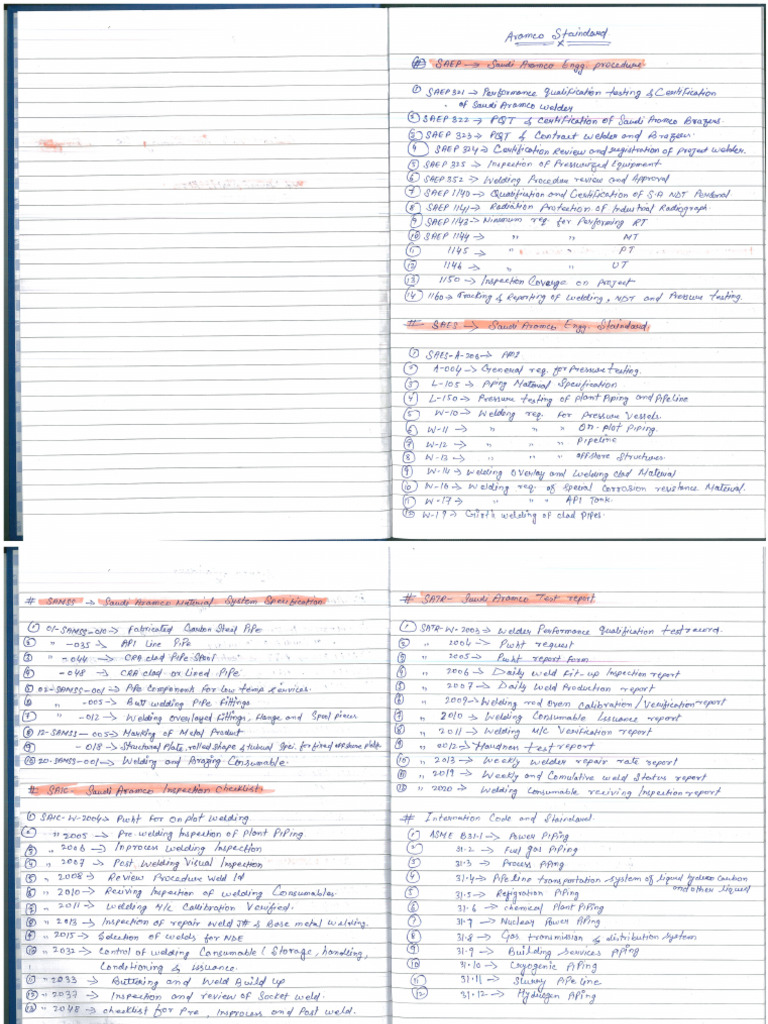 Aramco Staindard
x
# SAEP → Saudi Aramco Engg. procedure
① SAEP 321 → Performance Qualification testing & Certification
of Saudi Aramco welder
② SAEP 322 → PQT & certification of Saudi Aramco Brazers.
③ SAEP 323 → PQT & Contract welder and Brazers.
④ SAEP 324 → Certification Review and registration of project welder.
⑤ SAEP 325 → Inspection of Pressurized Equipment.
⑥ SAEP 352 → Welding Procedure review and Approval
⑦ SAEP 1140 → Qualification and Certification of S.A NDT Personal
⑧ SAEP 1141 → Radiation Protection of Industrial Radiograph.
⑨ SAEP 1143 → Minimum req. for Performing RT
⑩ SAEP 1144 → " " MT
⑪ 1145 → " " PT
⑫ 1146 → " " UT
⑬ 1150 → Inspection Coverage on Project
⑭ 1160 → Tracking & Reporting of Welding, NDT and Pressure testing.
# SAES → Saudi Aramco Engg. Staindard.
① SAES-A-206 → PMI
② A-004 → General req. for Pressure testing.
③ L-105 → Piping Material Specification
④ L-150 → Pressure testing of plant Piping and Pipeline
⑤ W-10 → Welding req. For pressure vessels.
⑥ W-11 → " " " On-plot Piping.
⑦ W-12 → " " " Pipeline
⑧ W-13 → " " " offshore Structures.
⑨ W-14 → Welding Overlay and Welding clad Material
⑩ W-16 → Welding req. of special Corrosion resistance Material.
⑪ W-17 → " " " API Tank.
⑫ W-19 → Girth welding of clad pipes.
# SAMSS → Saudi Aramco Material System Specification
① 01-SAMSS-010 → Fabricated Carbon Steel Pipe
② " -035 → API Line Pipe
③ " -044 → CRA clad Pipe Spool
④ " -048 → CRA clad or Lined Pipe
⑤ 02-SAMSS-001 → Pipe Component For low temp services.
⑥ " -005 → Butt welding Pipe Fittings
⑦ " -012 → Welding overlayed Fittings, Flange and Spool pieces
⑧ 12-SAMSS-005 → Marking of Metal Product
⑨ -018 → Structural Plate, rolled shape & tubual Spec. for fixed offshore platp
⑩ 20-SAMSS-001 → Welding and Brazing Consumable.
# SAIC - Saudi Aramco Inspection Checklist
① SAIC-W-2004 → PWHT For Onplot welding.
② " 2005 → Pre-welding Inspection of Plant Piping.
③ " 2006 → Inprocess welding Inspection
④ " 2007 → Post. Welding Visual Inspection
⑤ " 2008 → Review Procedure Weld Id
⑥ " 2010 → Reciving Inspection of welding Consumables.
⑦ " 2011 → Welding M/c Callibration Verified.
⑧ " 2013 → Inspection of repair weld Jt # & Base metal welding.
⑨ " 2015 → Selection of welds for NDE
⑩ " 2032 → Control of welding Consumable (Storage, handling,
Conditioning & issuance.
⑪ " 2033 → Buttering and Weld Build up
⑫ " 2037 → Inspection and review of Socket weld.
⑬ " 2048 → checklist for Pre, Inprocess and Post weld.
# SATR - Saudi Aramco Test report
① SATR-W-2003 → Welder Performance Qualification test record.
② " 2004 → PWHT request
③ " 2005 → PWHT report form
④ " 2006 → Daily Weld Fit-up Inspection report
⑤ " 2007 → Daily Weld Production report
⑥ " 2009 → Welding rod oven Calibration/Verification report
⑦ " 2010 → Welding Consumable Issuance report
⑧ " 2011 → Welding M/C Verification report
⑨ " 0012 → Hardness test report
⑩ " 2013 → Weekly welder repair rate report
⑪ " 2019 → Weekly and Comulative weld Status report
⑫ " 2020 → Welding Consumable reciving / Inspection report
# Internation Code and Staindard.
① ASME B31.1 → Power Piping
② 31.2 → Fuel gas Piping
③ 31.3 → Process Piping
④ 31.4 → Pipeline transportation system of liquid hydro carbon
and other liquid
⑤ 31.5 → Refrigration Piping
⑥ 31.6 → chemical Plant Piping
⑦ 31.7 → Nuclear Power Piping
⑧ 31.8 → Gas transmission & distribution system
⑨ 31.9 → Building services piping
⑩ 31.10 → Cryogenic Piping
⑪ 31.11 → Slurry Pipeline
⑫ 31.12 → Hydrogen Piping